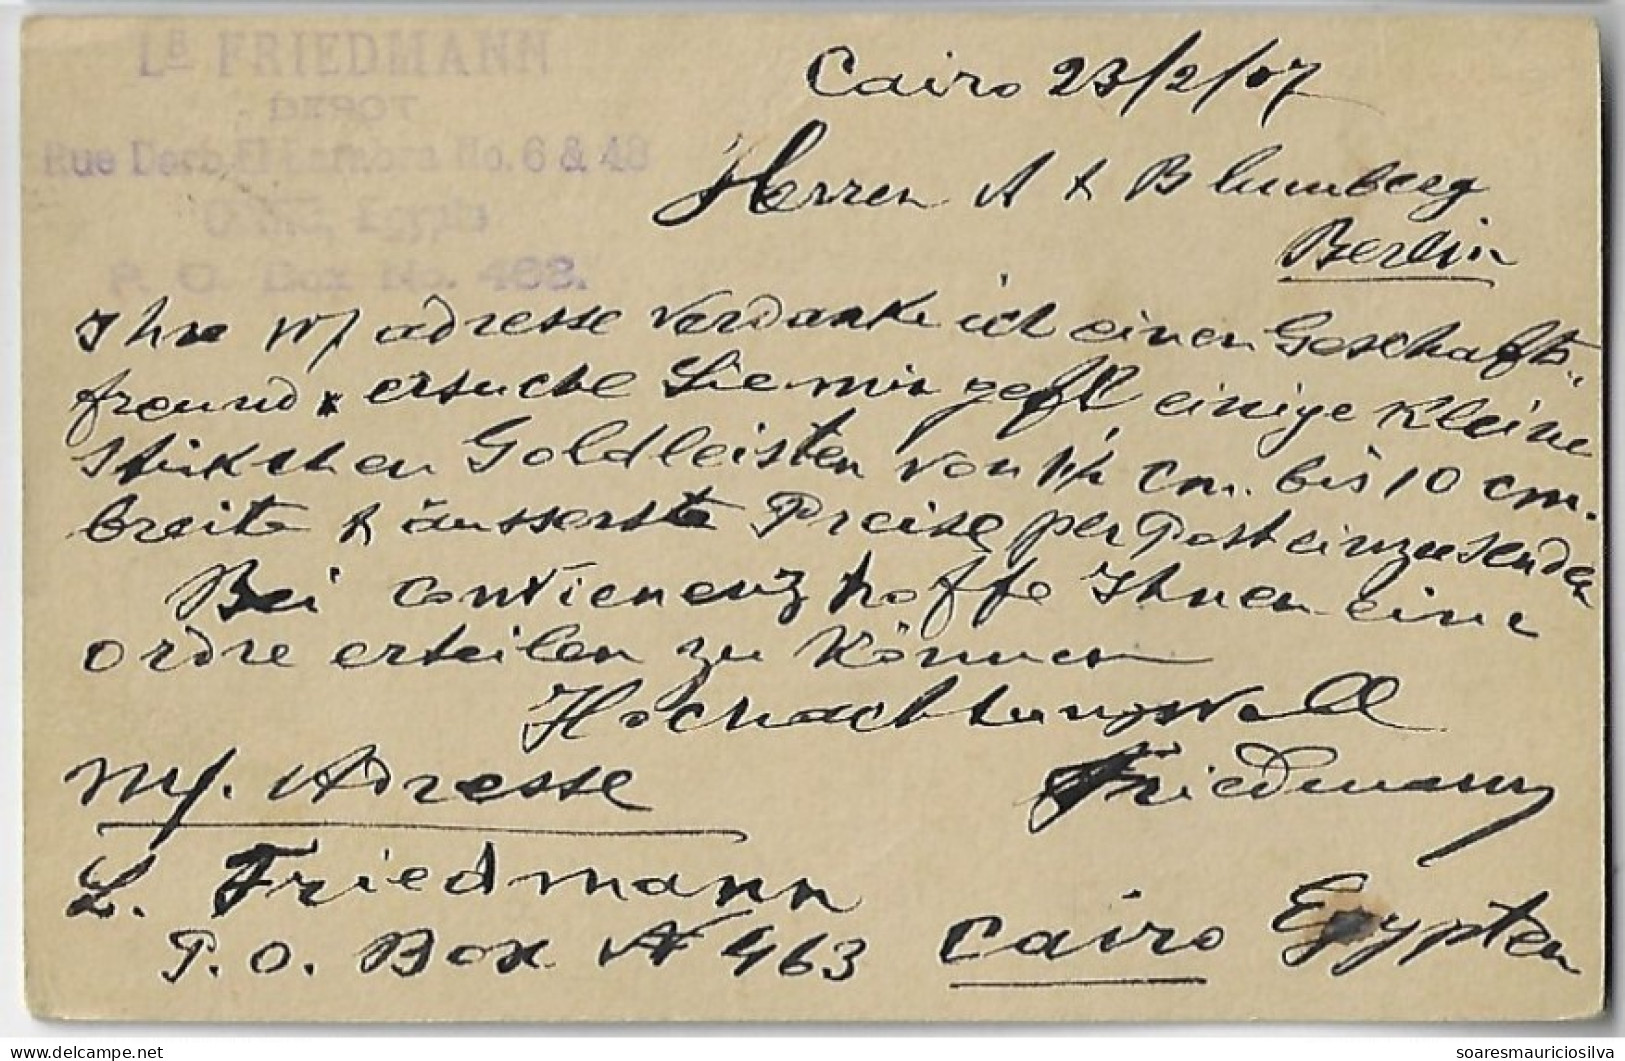 L.B FRIEDMANN
DEPOT
Rue Derb El No. 6 & 48
P. O. Box No. 463.
Cairo 23/2/07
Herren A & B Blumberg
Berlin
Ihre w/ adresse verdanke ich einen Geschäfts-
freund & ersuche Sie mir gefl einige kleine
Stükchen Goldleisten von 1½ cm. bis 10 cm.
breite & äusserste Preise per Post einzusenden
Bei convienenz hoffe Ihnen eine
ordre erteilen zu können
Hochachtungsvoll
Friedmann
m/. Adresse
L. Friedmann
P. O. Box N 463 Cairo Egypten
soaresmauriciosilva